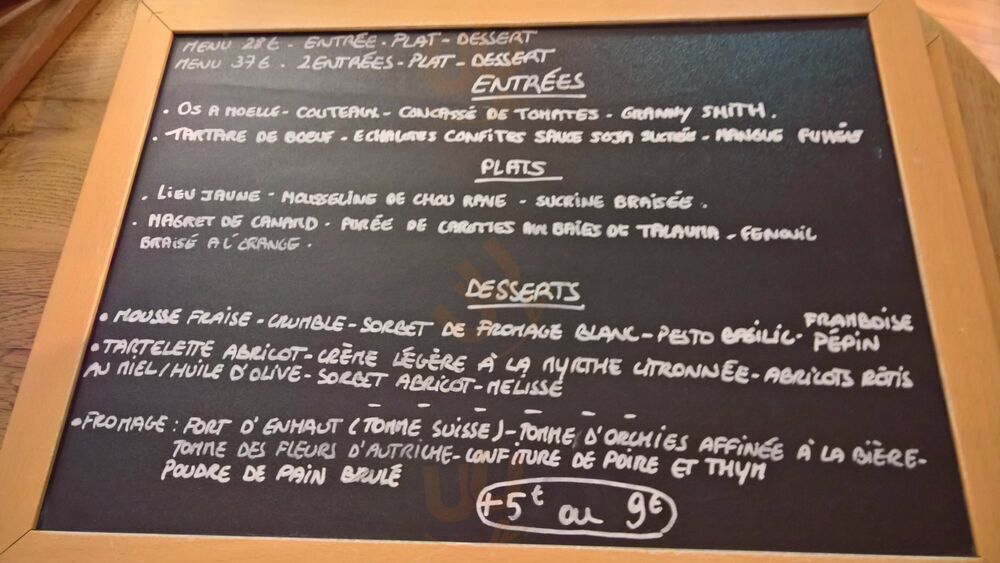 MENU 28€ - ENTRÉE - PLAT - DESSERT
MENU 37€ - 2 ENTRÉES - PLAT - DESSERT
ENTRÉES
• OS A MOELLE - COUTEAUX - CONCASSÉ DE TOMATES - GRANNY SMITH.
• TARTARE DE BOEUF - ECHALOTES CONFITES SAUCE SOJA SUCRÉE - MANGUE FUMÉE
PLATS
• LIEU JAUNE - MOUSSELINE DE CHOU RAVE - SUCRINE BRAISÉE.
• MAGRET DE CANARD - PURÉE DE CAROTTES AUX BAIES DE TALAUMA - FENOUIL
BRAISÉ A L'ORANGE.
DESSERTS
• MOUSSE FRAISE - CRUMBLE - SORBET DE FROMAGE BLANC - PESTO BASILIC - FRAMBOISE
PÉPIN
• TARTELETTE ABRICOT - CRÈME LÉGÈRE À LA MYRTHE CITRONNÉE - ABRICOTS RÔTIS
AU MIEL/HUILE D'OLIVE - SORBET ABRICOT - MELISSE
• FROMAGE : FORT D'ENHAUT (TOMME SUISSE) - TOMME D'ORCHIES AFFINÉE À LA BIÈRE -
TOMME DES FLEURS D'AUTRICHE - CONFITURE DE POIRE ET THYM
POUDRE DE PAIN BRULÉ
+5€ ou 9€